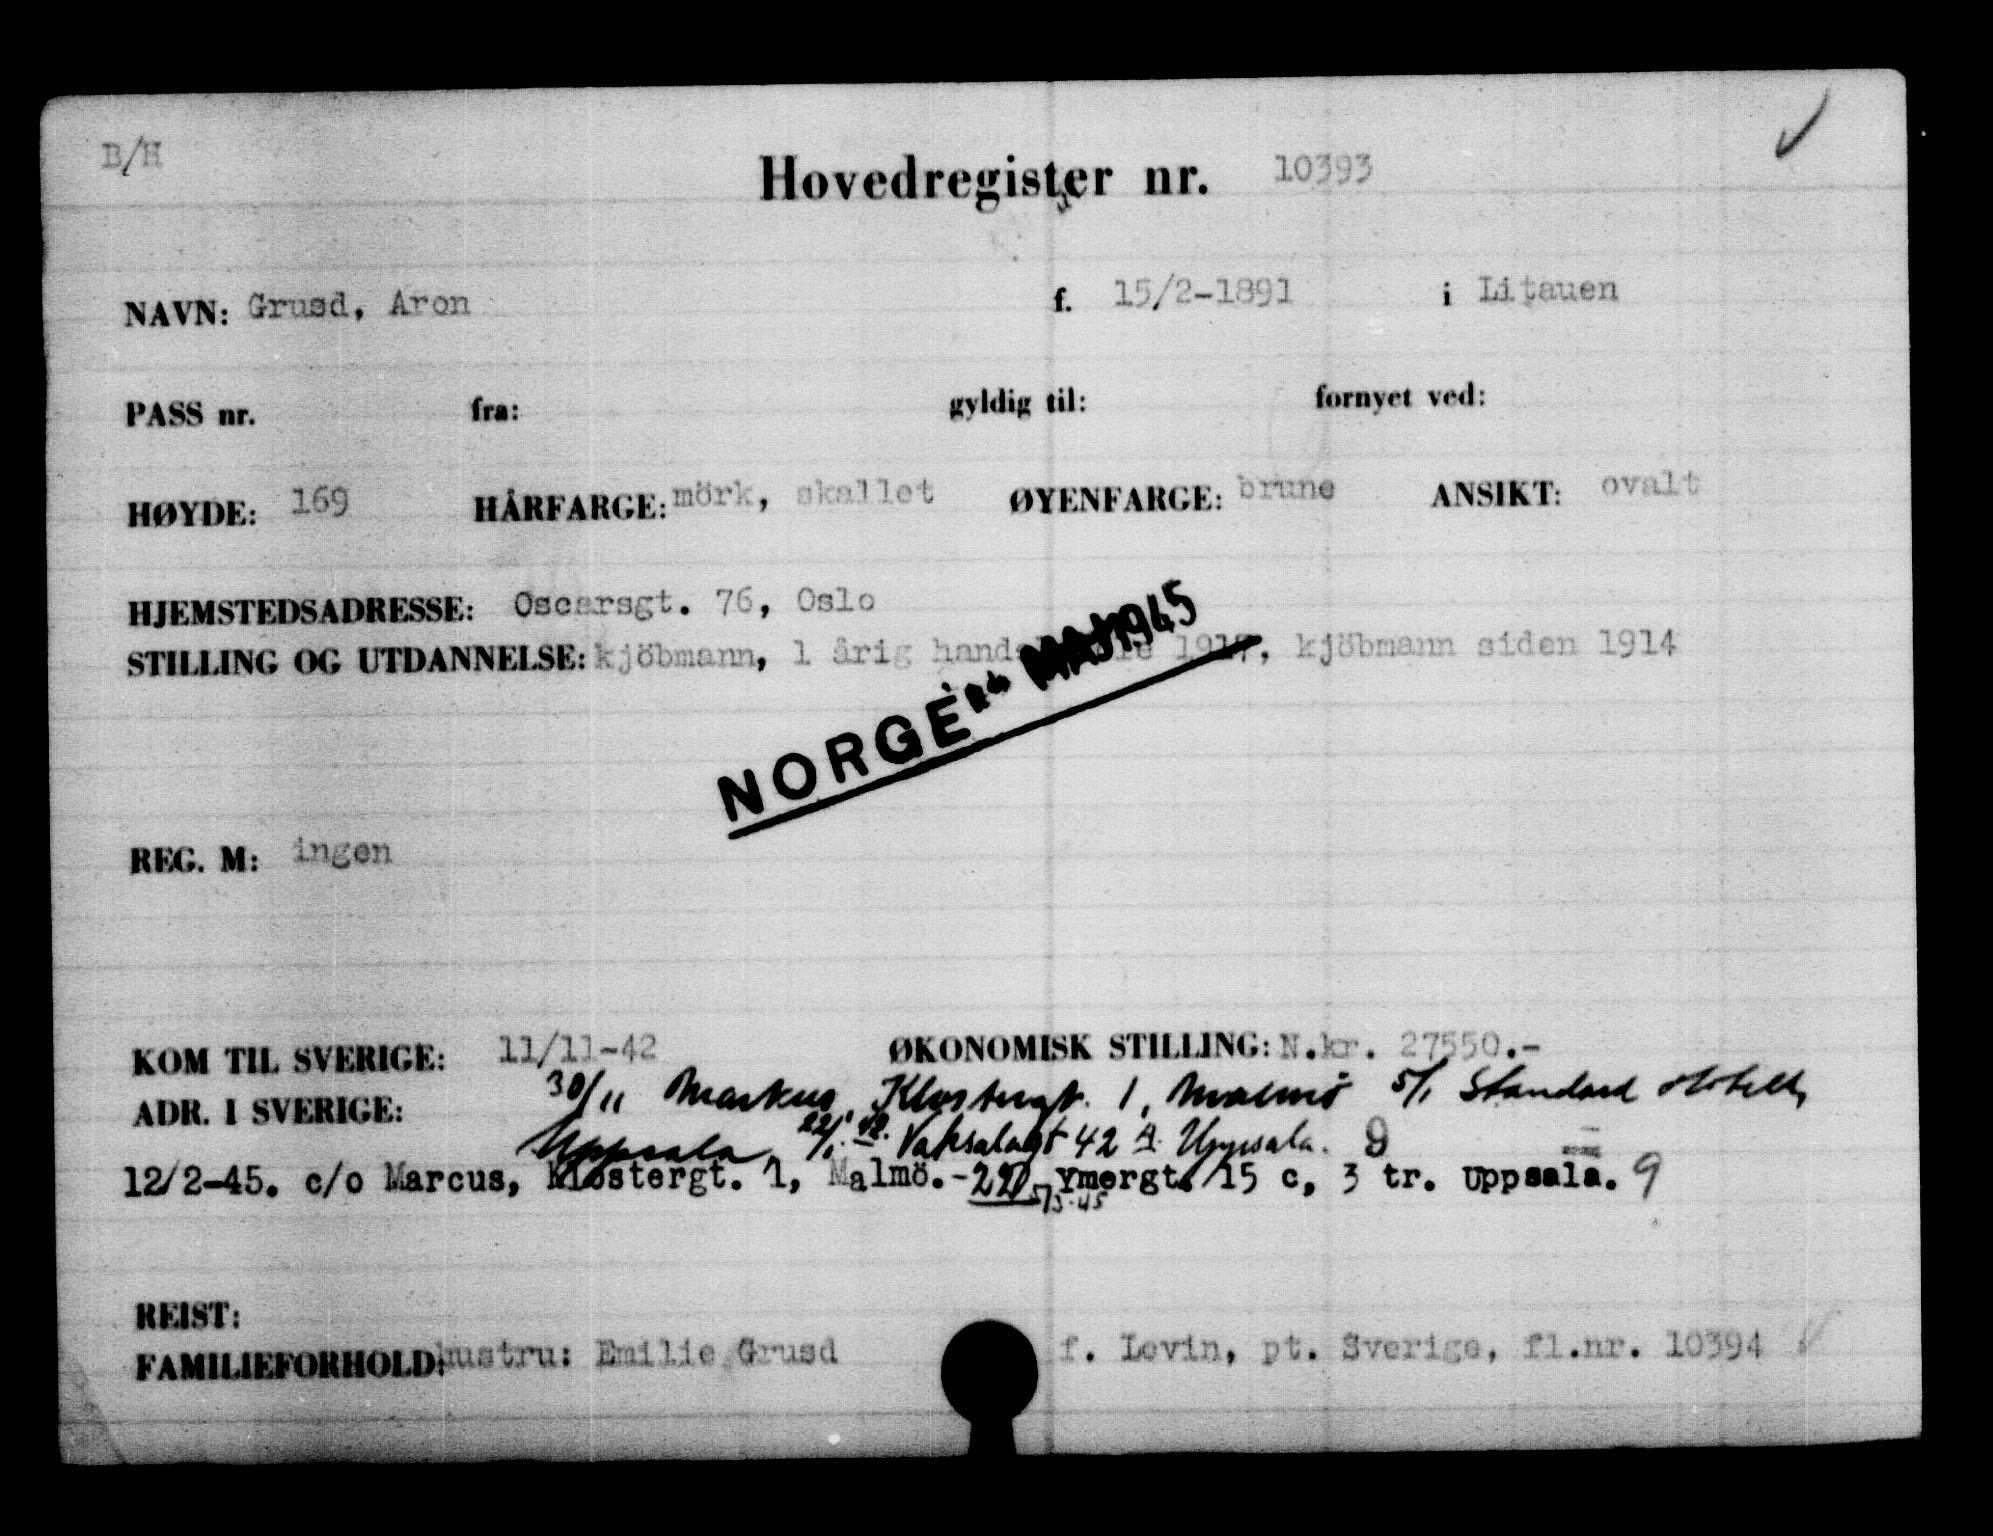 B/H
Hovedregister nr. 10393
NAVN: Grusd, Aron f. 15/2-1891 i Litauen
PASS nr. fra: gyldig til: fornyet ved:
HØYDE: 169 HÅRFARGE: mörk, skallet ØYENFARGE: brune ANSIKT: ovalt
HJEMSTEDSADRESSE: Oscarsgt. 76, Oslo
STILLING OG UTDANNELSE: kjöbmann, 1 årig 1917, kjöbmann siden 1914
NORGE MAI 1945
REG. M: ingen
KOM TIL SVERIGE: 11/11-42 ØKONOMISK STILLING: N.kr. 27550.-
ADR. I SVERIGE: 30/11 Markus, Klostergt. 1, Malmö 5/1 Standard Hotell,
Uppsala, 22/1. Vaksalagt 42 A. Uppsala. 9
12/2-45. c/o Marcus, Klostergt. 1, Malmö.- 220 Ymergt. 15 c, 3 tr. Uppsala. 9
5/3-45
REIST:
FAMILIEFORHOLD: hustru: Emilie Grusd f. Levin, pt. Sverige, fl.nr. 10394